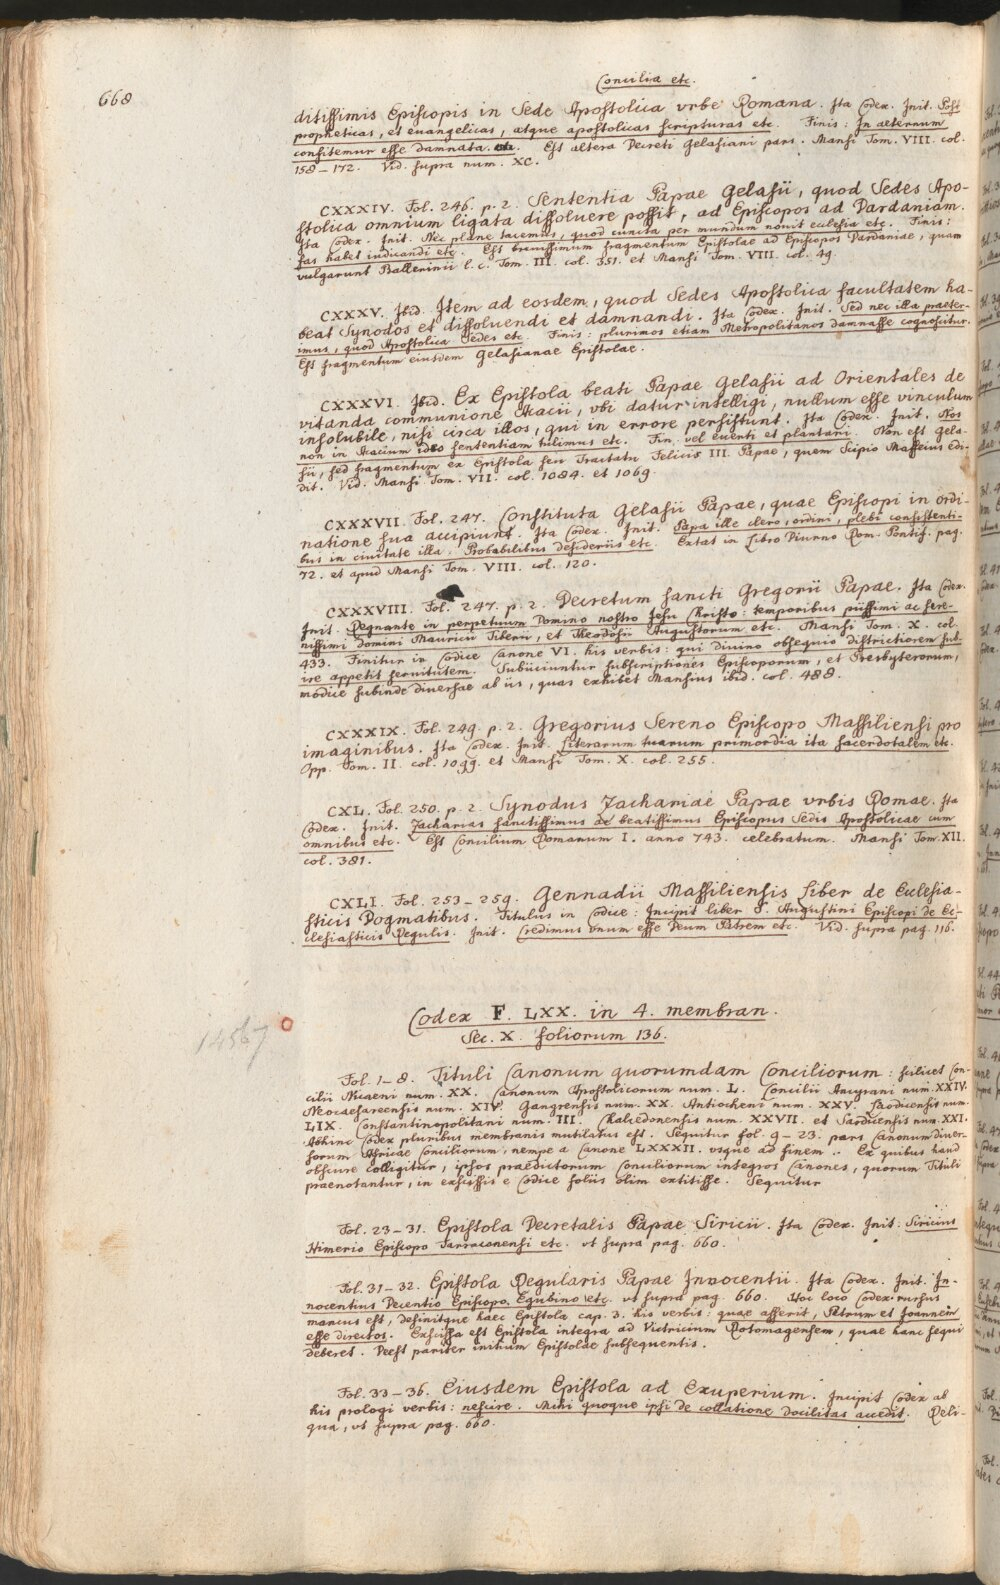 668
Concilia etc.
ditissimis Episcopis in Sede Apostolica vrbe Romana. Ita Codex. Init. Post
propheticas, et euangelicas, atque apostolicas scripturas etc. Finis: In aeternum
confitemur esse damnata. Est altera Decreti Gelasiani pars. Mansi Tom. VIII. col.
158-172. Vid. supra num. XC.
CXXXIV. Fol. 246. p. 2. Sententia Papae Gelasii, quod Sedes Apo-
stolica omnium ligata dissoluere possit, ad Episcopos ad Dardaniam.
Ita Codex. Init. Nec plane tacemus, quod cuncta per mundum nouit ecclesia etc. Finis:
fas habet iudicandi etc. Est breuissimum fragmentum Epistolae ad Episcopos Dardaniae, quam
vulgarunt Ballerinii l. c. Tom. III. col. 351. et Mansi Tom. VIII. col. 49.
CXXXV. Ibid. Item ad eosdem, quod Sedes Apostolica facultatem ha-
beat Synodos et dissoluendi et damnandi. Ita Codex. Init. Sed nec illa praeter-
imus, quod Apostolica Sedes etc. Finis: plurimos etiam Metropolitanos damnasse cognoscitur.
Est fragmentum eiusdem Gelasianae Epistolae.
CXXXVI. Ibid. Ex Epistola beati Papae Gelasii ad Orientales de
vitanda communione Acacii, vbi datur intelligi, nullum esse vinculum
insolubile, nisi circa illos, qui in errore persistunt. Ita Codex. Init. Nos
non in Acacium ideo sententiam tulimus etc. Fin. vel euenti et plantari. Non est Gela-
sii, sed fragmentum ex Epistola seu Tractatu Felicis III. Papae, quem Scipio Maffeius edi-
dit. Vid. Mansi Tom. VII. col. 1084. et 1069.
CXXXVII. Fol. 247. Constituta Gelasii Papae, quae Episcopi in ordi-
natione sua accipiunt. Ita Codex. Init. Papa ille clero, ordini, plebi consistenti-
bus in ciuitate illa. Probabilibus desideriis etc. Extat in Libro Diurno Rom. Pontif. pag.
72. et apud Mansi Tom. VIII. col. 120.
CXXXVIII. Fol. 247. p. 2. Decretum sancti Gregorii Papae. Ita Codex.
Init. Regnante in perpetuum Domino nostro Jesu Christo: temporibus piissimi ac sere-
nissimi Domini Mauricii Tiberii, et Theodosii Augustorum etc. Mansi Tom. X. col.
433. Finitur in Codice Canone VI. his verbis: qui diuino obsequio districtiorem sub-
ire appetit seruitutem. Subiiciuntur subscriptiones Episcoporum, et Presbyterorum,
modice subinde diuersae ab iis, quas exhibet Mansius ibid. col. 488.
CXXXIX. Fol. 249. p. 2. Gregorius Sereno Episcopo Massiliensi pro
imaginibus. Ita Codex. Init. Literarum tuarum primordia ita sacerdotalem etc.
Opp. Tom. II. col. 1099. et Mansi Tom. X. col. 255.
CXL. Fol. 250. p. 2. Synodus Zachariae Papae vrbis Romae. Ita
Codex. Init. Zacharias sanctissimus ac beatissimus Episcopus Sedis Apostolicae cum
omnibus etc. Est Concilium Romanum I. anno 743. celebratum. Mansi Tom. XII.
col. 381.
CXLI. Fol. 253-259. Gennadii Massiliensis Liber de Ecclesia-
sticis Dogmatibus. Titulus in Codice: Incipit liber S. Augustini Episcopi de Ec-
clesiasticis Regulis. Init. Credimus vnum esse Deum Patrem etc. Vid. supra pag. 116.
Codex F. LXX. in 4. membran.
14567
Sec. X. foliorum 136.
Fol. 1-8. Tituli Canonum quorumdam Conciliorum: scilicet Con-
cilii Nicaeni num. XX. Canonum Apostolicorum num. L. Concilii Ancyrani num. XXIV.
Neocaesareensis num. XIV. Gangrensis num. XX. Antiocheni num. XXV. Laodicensis num.
LIX. Constantinopolitani num. III. Chalcedonensis num. XXVII. et Sardicensis num. XXI.
Abhinc Codex pluribus membranis mutilatus est. Sequitur fol. 9-23. pars Canonum diuer-
sorum Africae Conciliorum, nempe a Canone LXXXII. vsque ad finem. Ex quibus haud
obscure colligitur, ipsos praedictorum Conciliorum integros Canones, quorum Tituli
praenotantur, in exscissis e Codice foliis olim extitisse. Sequitur
Fol. 23-31. Epistola Decretalis Papae Siricii. Ita Codex. Init: Siricius
Himerio Episcopo Tarraconensi etc. vt supra pag. 660.
Fol. 31-32. Epistola Regularis Papae Innocentii. Ita Codex. Init. In-
nocentius Decentio Episcopo Egubino etc. vt supra pag. 660. Hoc loco Codex rursus
mancus est, desinitque haec Epistola cap. 3. his verbis: quae asserit, Petrum et Joannem
esse directos. Exscissa est Epistola integra ad Victricium Rotomagensem, quae hanc sequi
deberet. Deest pariter initium Epistolae subsequentis.
Fol. 33-36. Eiusdem Epistola ad Exuperium. Incipit Codex ab
his prologi verbis: nescire. Mihi quoque ipsi de collatione docilitas accedit. Reli-
qua, vt supra pag. 660.